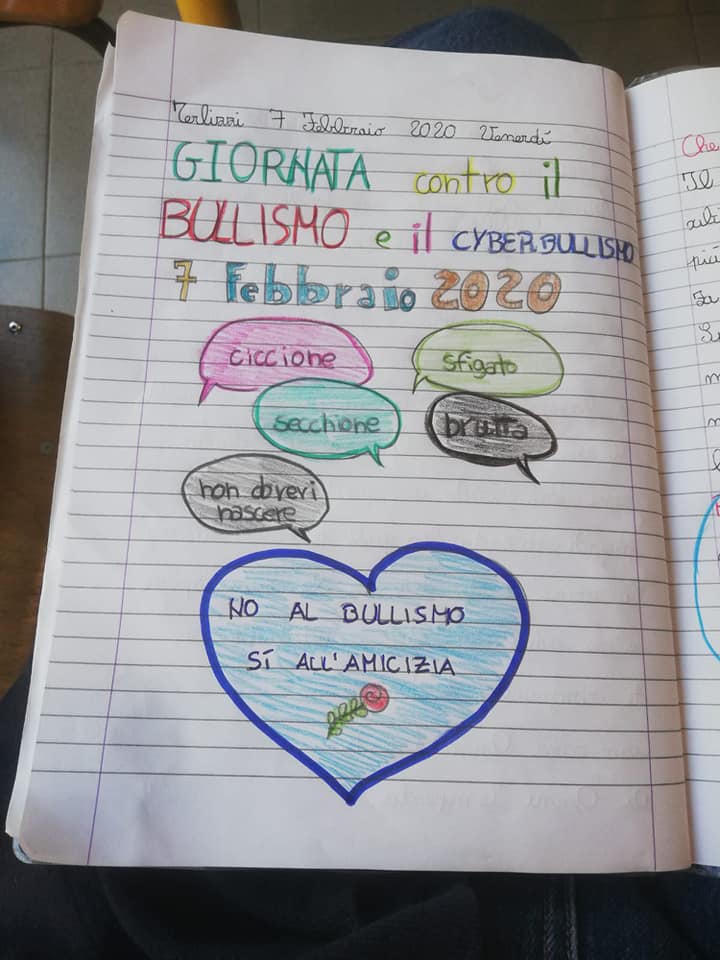 Terlizzi 7 Febbraio 2020 Venerdí
GIORNATA contro il
BULLISMO e il CYBERBULLISMO
7 febbraio 2020
ciccione
sfigato
secchione
brutta
non dovevi
nascere
NO AL BULLISMO
SÍ ALL'AMICIZIA
Che
Il